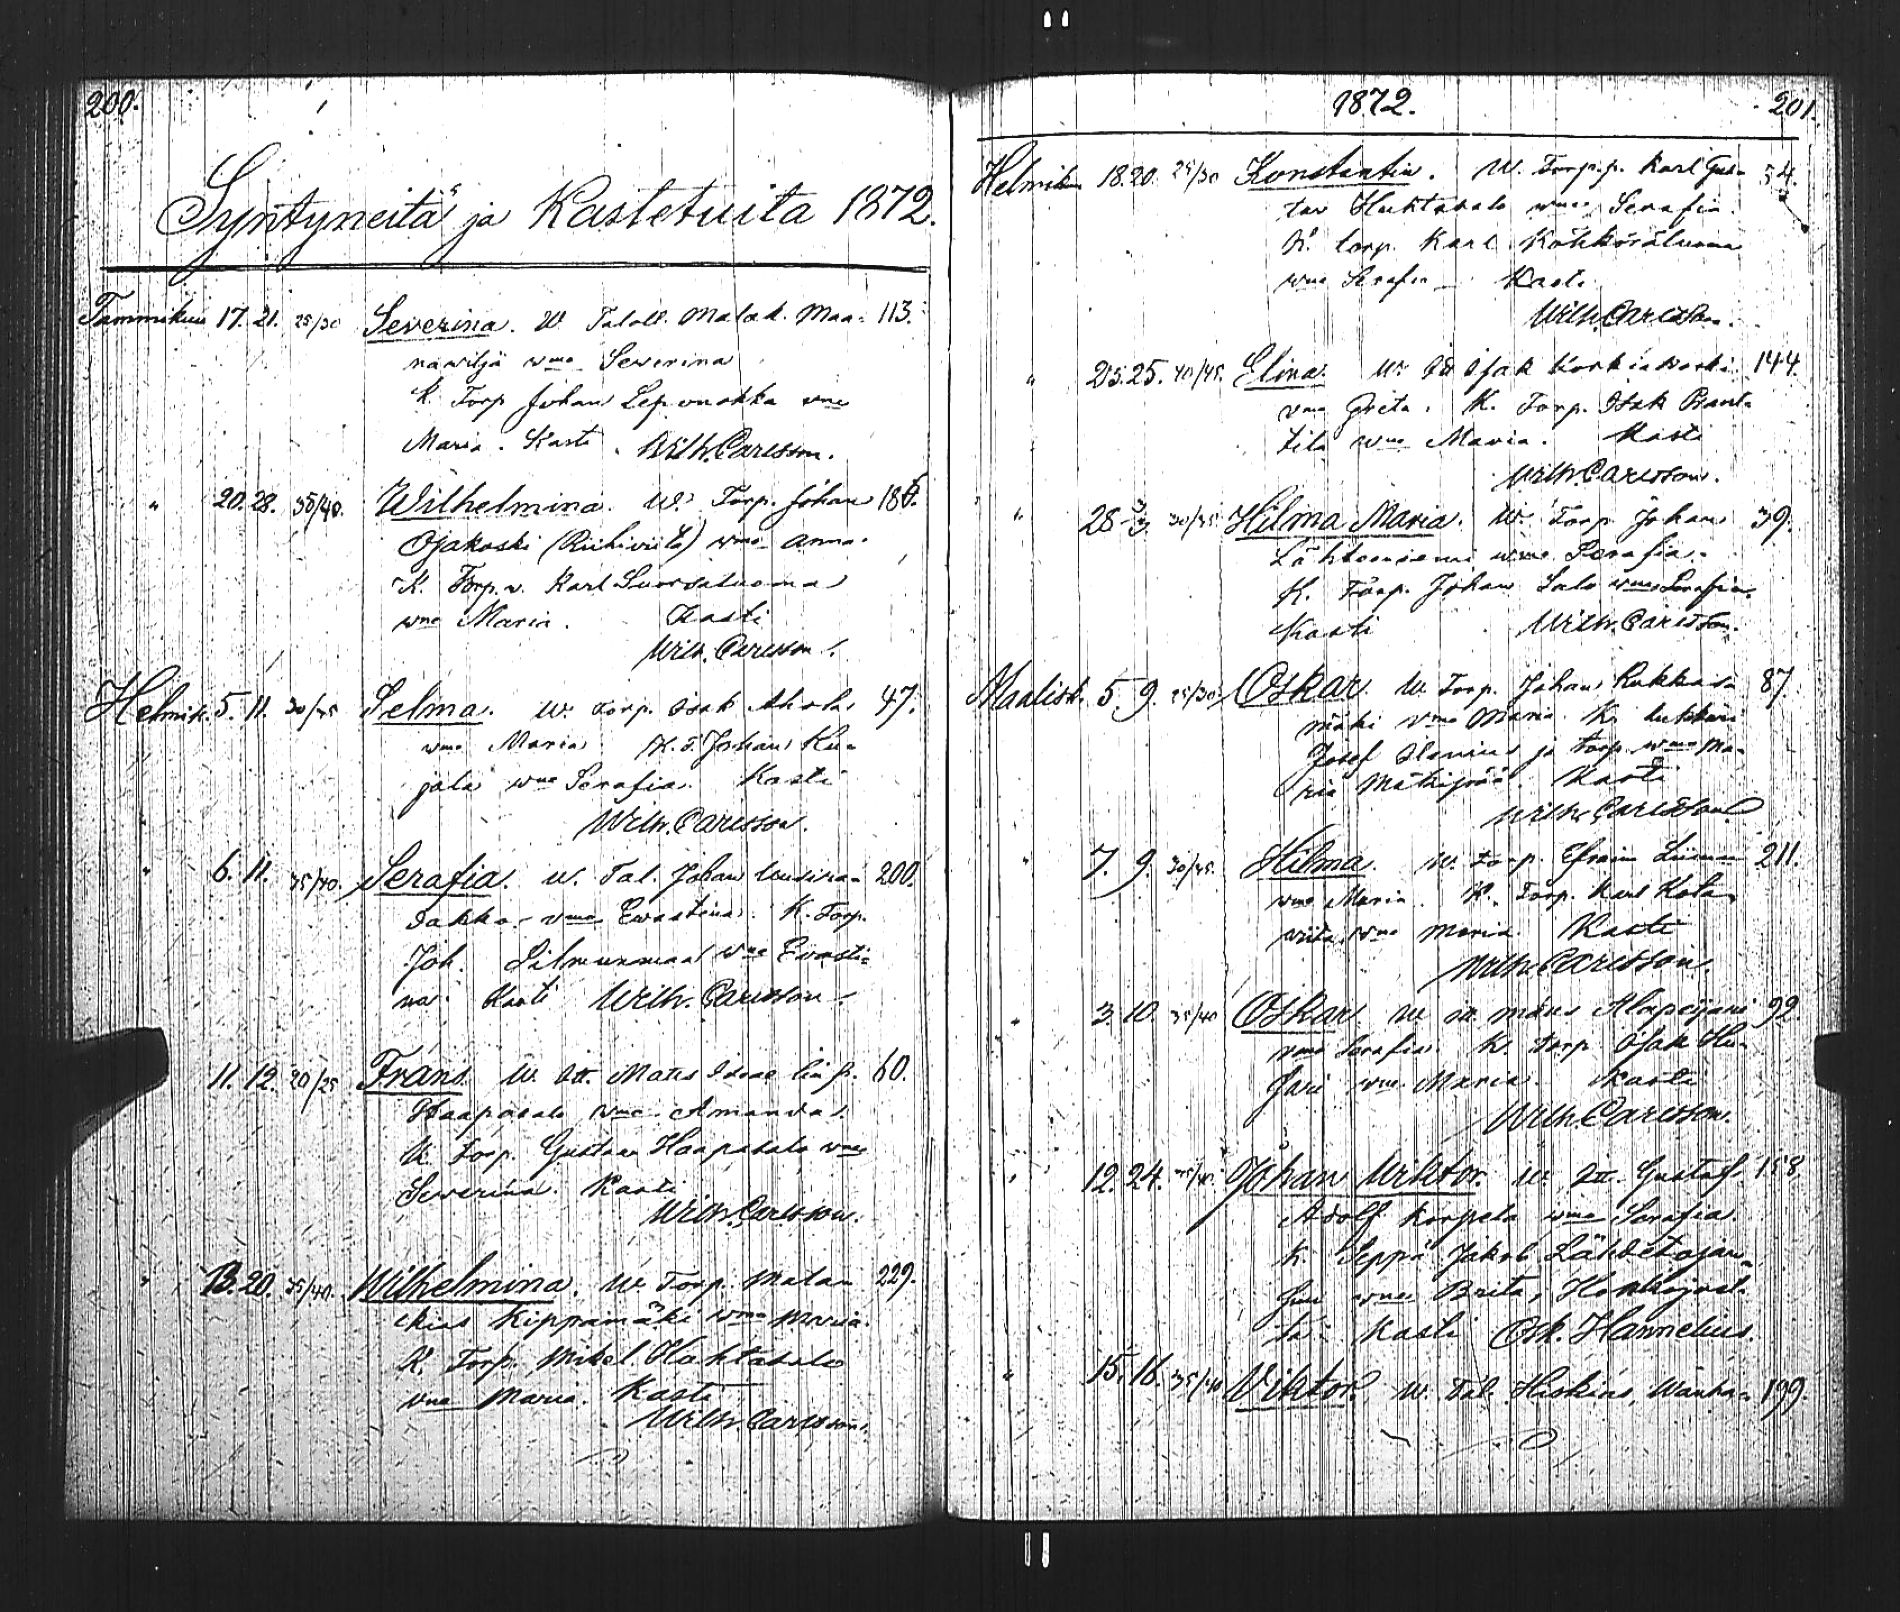 200.
Syntyneitä ja Kastetuita 1872.
Tammikuu 17. 21. 25/30 Severina. W. Taloll. Malak. Maa- 113.
nawiljä wmo Severina
K. Torp Johan Leponokka wmo
Maria. Kasti. Wilh. Carlsson.
" 20. 28. 35/40. Wilhelmina. W. Torp. Johan 186.
Ojakoski (Riihiviita) wmo Anna.
K. Torp. v. Karl Luovatuoma
wmo Maria. Kasti
Wilh. Carlsson.
Helmik. 5. 11. 30/35 Selma. W. Torp. Isak Ahola 47.
wmo Maria K. T. Johan Ku-
jala wmo Serafia. Kasti
Wilh. Carlsson.
" 6. 11. 35/40. Serafia. W. Tal. Johan Uusika- 200.
sakko wmo Ewastina. K. Torp.
Joh. Silmunmaa wmo Ewasti-
na. Kasti Wilh. Carlsson.
11. 12. 20/25 Frans W. Itt. Mats Isac lin p. 60.
Haapasalo wmo Amanda.
K. Torp. Gustav Haapasalo wmo
Severina. Kasti
Wilh. Carlsson.
" 13. 20. 35/40. Wilhelmina. W. Torp. Mala- 229.
kias Kippamäki wmo Maria.
K Torp. Mikel Hahtasalo
wmo Maria. Kasti
Wilh. Carlsson.
1872. 201.
Helmik. 18. 20. 25/30 Konstantin. W. Torp. p. Karl Gus- 54.
tav Huhtasalo wmo Serafia.
K. torp. Karl Köhköräluoma
wmo Serafia Kasti
Wilh. Carlsson.
" 25. 25. 40/45. Elina. W. Itt Isak Korkiakoski 144.
vmo Greta. K. Torp. Isak Rant-
tila wmo Maria. Kasti
Wilh. Carlsson.
" 28-3/3. 30/35 Hilma Maria. W. Torp Johan 39.
Lähteenniemi wmo Serafia.
K. Torp. Johan Salo wmo Serafia.
Kasti Wilh. Carlsson.
Maalisk. 5. 9. 25/30 Oskar. W. Torp. Johan Rukkas- 87.
mäki vmo Maria. K. lukkari
Josef Ilenius ja torp. wmo Ma-
ria Mätkipää. Kasti
Wilh. Carlsson.
" 7. 9. 30/35. Hilma. W. torp. Efraim 211.
wmo Maria. K. Torp. Karl Kola-
viita wmo Maria. Kasti
Wilh. Carlsson.
" 3. 10. 35/40 Oskar W itt. Måns Alapiijani 92.
vmo Serafia. K. torp Isak Hu-
jari wmo Maria. Kasti
Wilh. Carlsson.
" 12. 24. 35/40. Johan Wiktor. W. Itt. Gustaf 158.
Adolf Korpela wmo Serafia.
K. Seppä Jakob Lähdetojan-
suu wmo Brita, Honkajoel-
ta. Kasti Osk. Hannelius.
" 15. 16. 35/40 Viktor. W. Tal. Hiskias Wanha- 199.